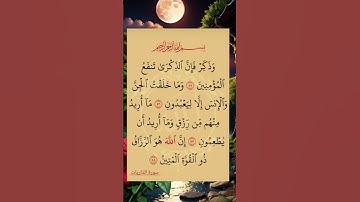 بسم الله الرحمن الرحيم
وَذَكِّرْ فَإِنَّ ٱلذِّكْرَىٰ تَنفَعُ
ٱلْمُؤْمِنِينَ ٥٥ وَمَا خَلَقْتُ ٱلْجِنَّ
وَٱلْإِنسَ إِلَّا لِيَعْبُدُونِ ٥٦ مَآ أُرِيدُ
مِنْهُم مِّن رِّزْقٍ وَمَآ أُرِيدُ أَن
يُطْعِمُونِ ٥٧ إِنَّ ٱللَّهَ هُوَ ٱلرَّزَّاقُ
ذُو ٱلْقُوَّةِ ٱلْمَتِينُ ٥٨
سورة الذاريات